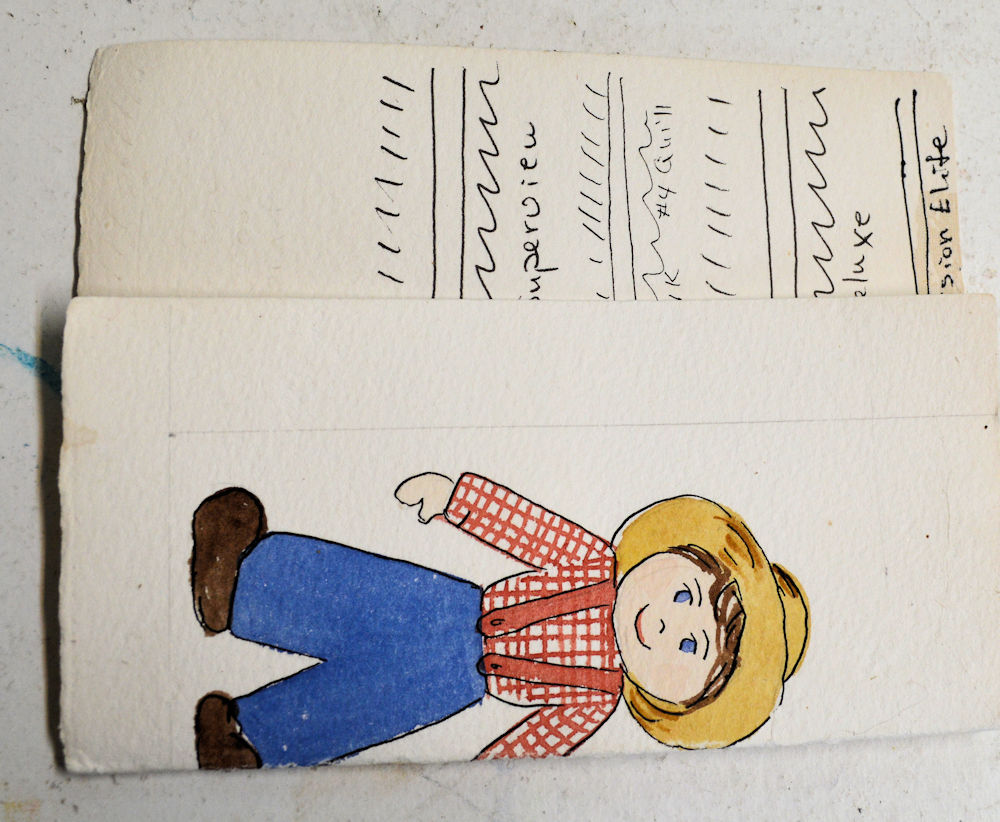 Superview
#4 Quill
eluxe
sion Elite